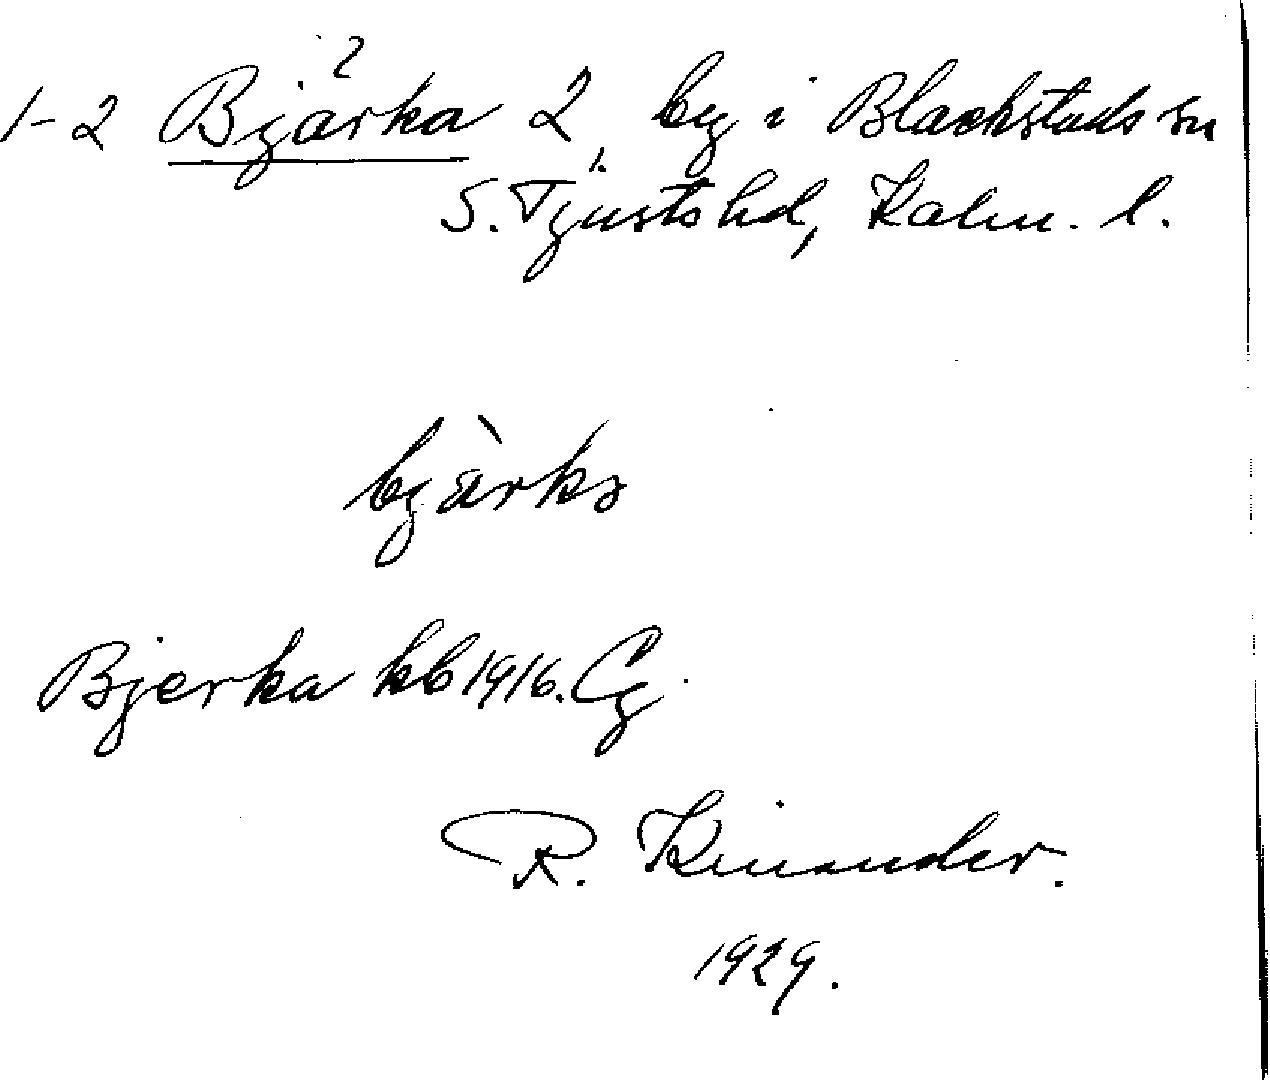 2
1-2 Bjärka 2 by i Blackstads sn
S. Tjusts hd, Kalm. l.
bjärkɑ
Bjerka kb 1916. Cg.
R. Kinander.
1929.